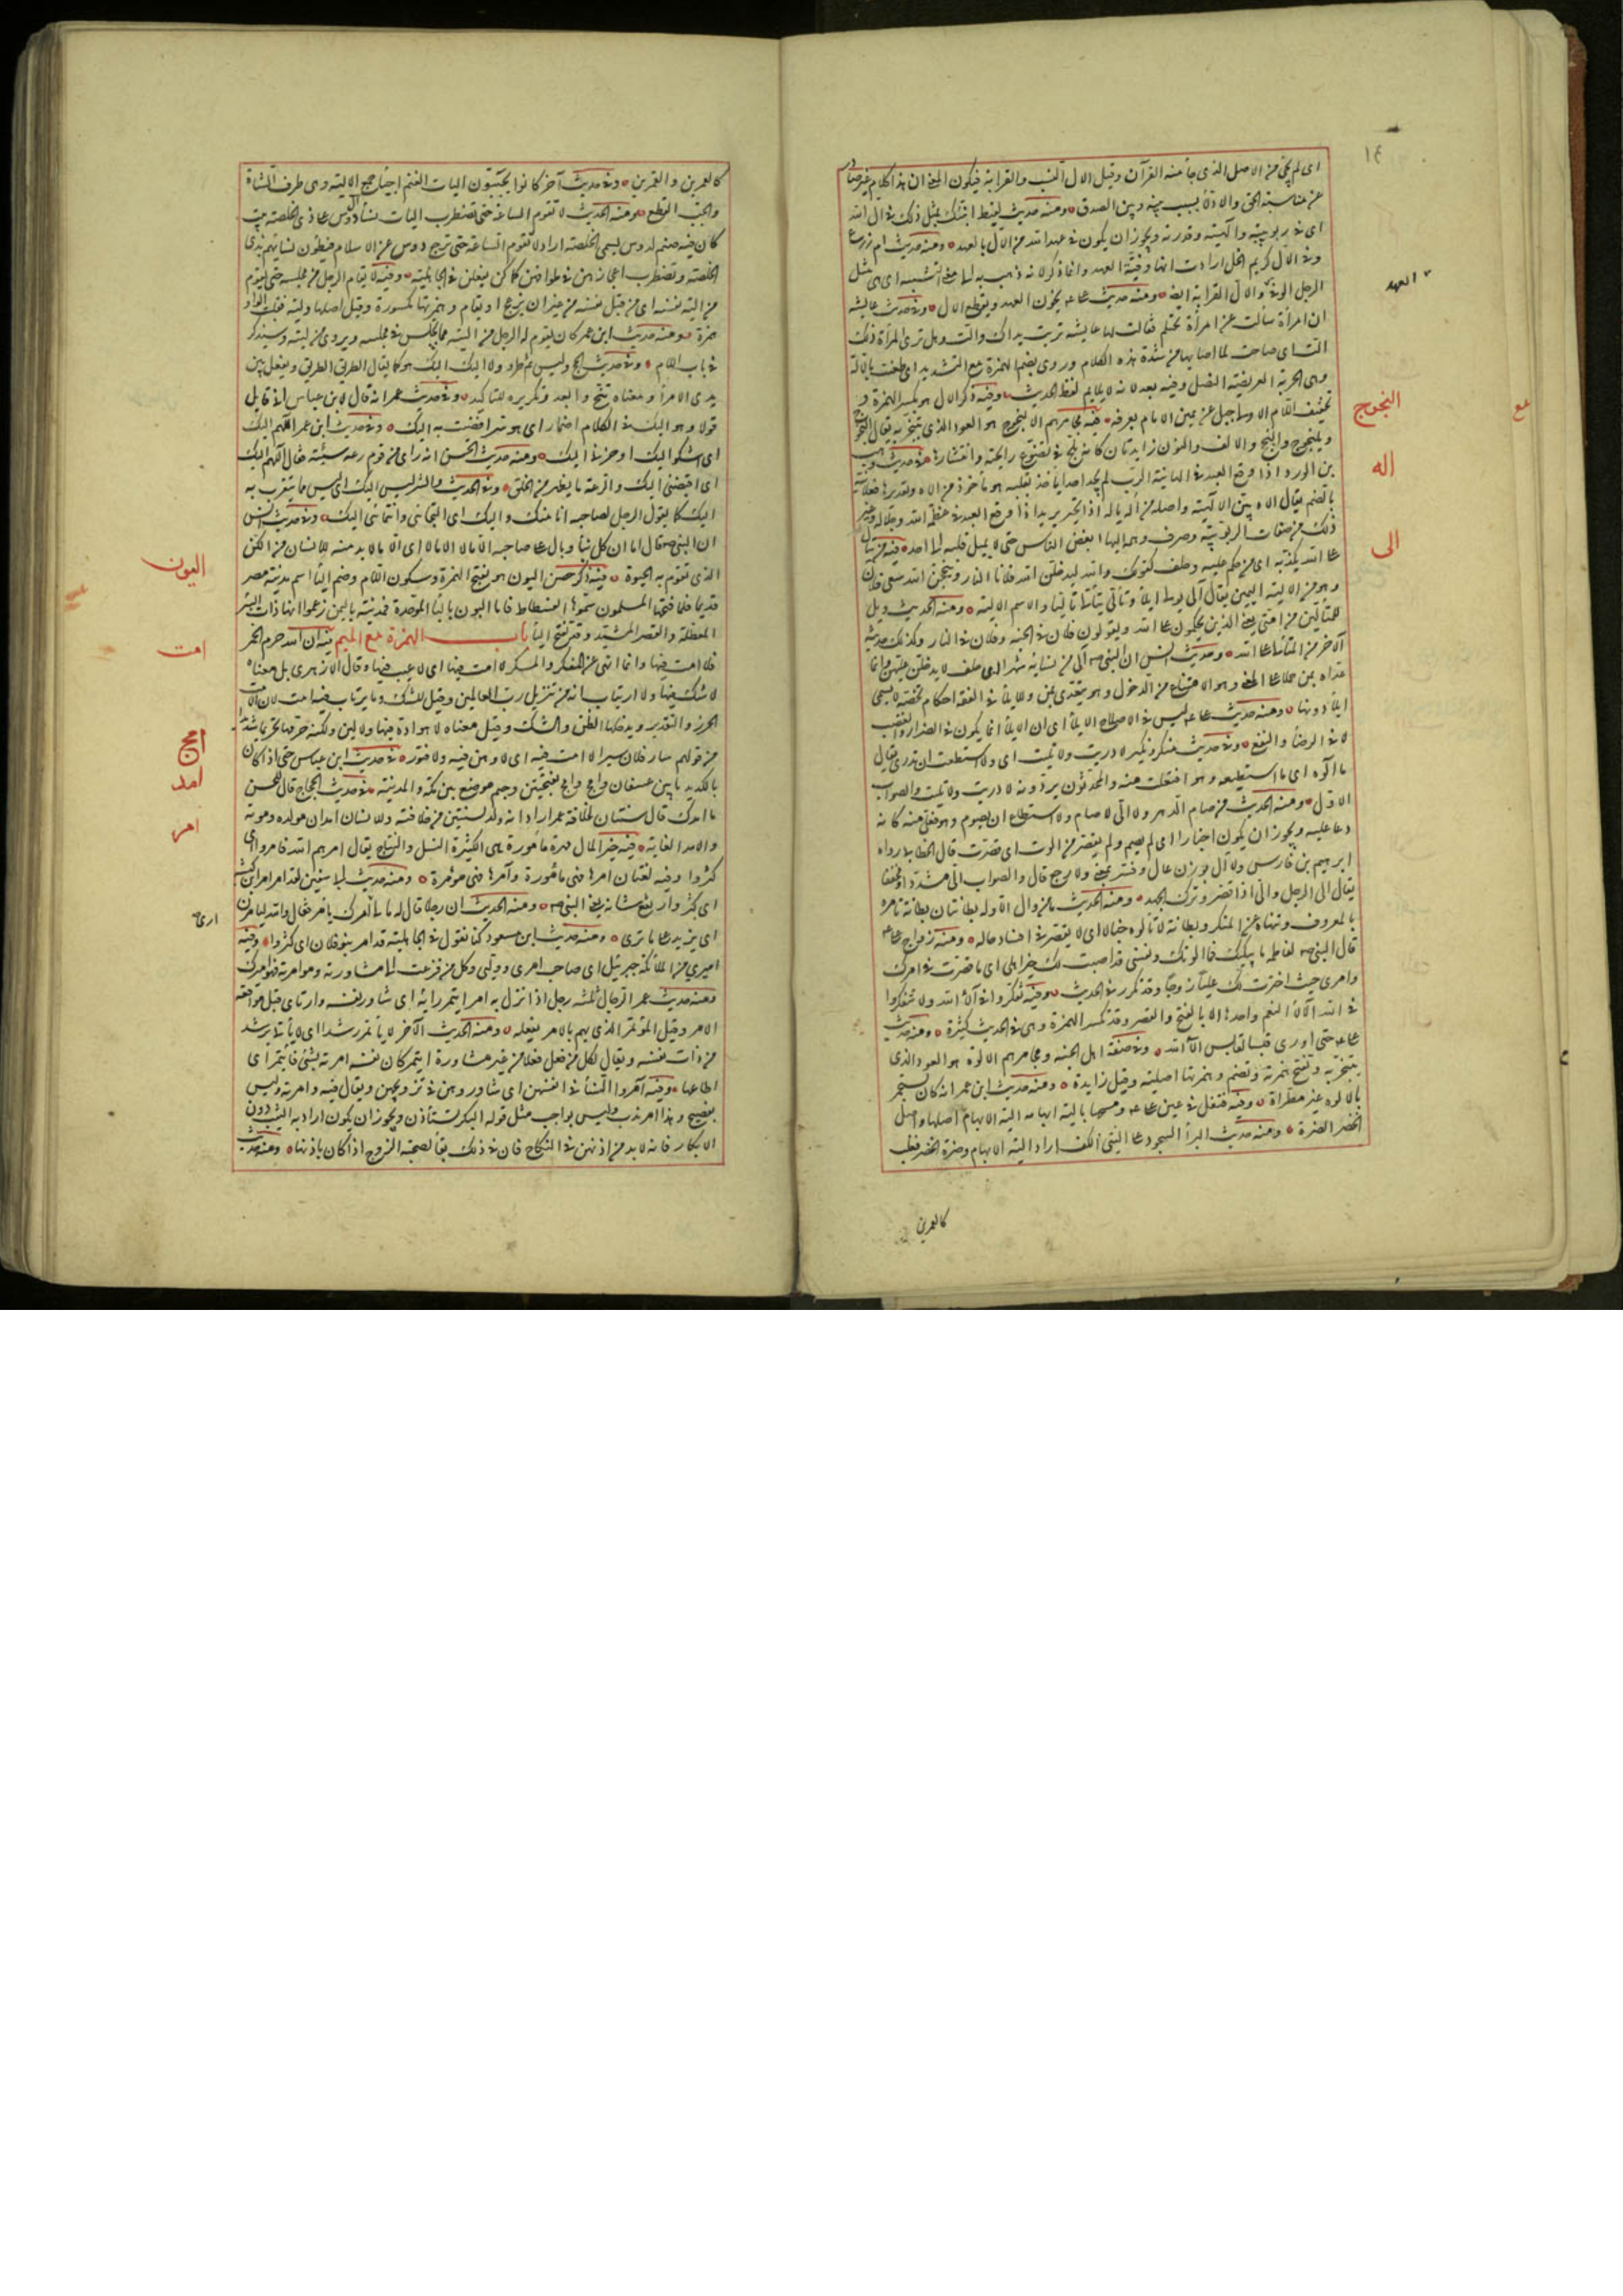 ١٤
اى لم يجئ من الاصل الذى جاء منه القرآن وقيل الال النسب والقرابة فيكون المعنى ان هذا كلام غير صادر
عن مناسبة الحق والادلاء بسبب بينه وبين الصدق ومنه حديث لقيط انبئك بمثل ذلك فى ال الله
اى فى ربوبيته والهيته وقدرته ويجوز ان يكون فى عهد الله من الال العهد ومنه حديث ام زرع
وفى الال كريم الخل ارادت انها وفية العهد وانما ذكر لانه ذهب به الى معنى التشبيه اى هى مثل
الرجل الوفى والال القرابة ايضا ومنه حديث على يخون العهد ويقطع الال وفى حديث عايشة
ان امرأة سألت عن المرأة تحتلم فقالت لها عايشة تربت يداك والت وهل ترى المرأة ذلك
الت اى صاحت لما اصابها من شدة هذا الكلام وروى بضم الهمزة مع التشديد اى طعنت بالالة
وهى الحربة العريضة النصل وفيه بعد لانه لا يلايم لفظ الحديث وفيه ذكر الال هو بكسر الهمزة و
تخفيف اللام الاولى جبل عن يمين الامام بعرفة فيه مجامرهم الالنجوج هو العود الذى يتبخر به يقال النجوج
ويلنجوج والنجج والالف والنون زايدتان كانه يلج فى تضوع رايحته وانتشارها فى حديث وهيب
بن الورد اذا وقع العبد فى الهانية الرب لم يجد احدا ياخذ بقلبه هو ماخوذ من اله وتقديرها فعلانية
بالضم يقال اله بين الالهية واصله من اله ياله اذا تحير يريد اذا وقع العبد فى عظمة الله وجلاله وغير
ذلك من صفات الربوبية وصرف وهمه اليها ابغض الناس حتى لا يميل قلبه الى احد فيه من يتال
على الله يكذبه اى من حكم عليه وحلف كقولك والله ليدخلن الله فلانا النار وينجحن الله سعى فلان
وهو من الالية اليمين يقال الى يولى ايلاء وتالى يتألى تاليا والاسم الالية ومنه الحديث ويل
للمتألين من امتى يعنى الذين يحكمون على الله ويقولون فلان فى الجنة وفلان فى النار وكذلك حديثه
الآخر من المتألى على الله وحديث انس ان النبى ص الى من نسائه شهرا اى حلف لا يدخل عليهن وانما
عداه بمن حملا على المعنى وهو الامتناع من الدخول وهو يتعدى بمن وللايلاء فى الفقه احكام تخصه لا يسمى
ايلاء دونها ومنه حديث على ليس فى الاصلاح ايلاء اى ان الايلاء انما يكون فى الضرار والغضب
لا فى الرضا والنفع وفى حديث منكر ونكير لا دريت ولا تليت اى ولا استطعت ان تدرى يقال
ما آلوه اى ما استطيعه وهو افتعلت منه والمحدثون يروونه لا دريت ولا تليت والصواب
الاول ومنه الحديث من صام الدهر ولا الى لا صام ولا استطاع ان يصوم وهو فعل منه كانه
دعا عليه ويجوز ان يكون اخبارا اى لم يصم ولم يقصر من الوت اى قصرت قال الخطابى رواه
ابرهيم بن فارس ولا آل بوزن عال وفسر بمعنى ولا رجع قال والصواب الى مشددا ومخففا
يقال الى الرجل والى اذا قصر وترك الجهد ومنه الحديث ما من وال الا وله بطانتان بطانة تامره
بالمعروف وتنهاه عن المنكر وبطانة لا تالوه خبالا اى لا تقصر فى افساد حاله ومنه زواج على
قال النبى ص لفاطمة ما يبكيك فما الوتك ونفسى قد اصبت لك خير اهلى اى ما قصرت فى امرك
وامرى حيث اخترت لك عليا زوجا وقد تكرر فى الحديث وفيه تفكروا فى آلاء الله ولا تتفكروا
فى الله الآلاء النعم واحدها الا بالفتح والقصر وقد تكسر الهمزة وهى فى الحديث كثيرة ومنه حديث
على حتى اورى قبسا لقابس آلاء الله وفى صفة اهل الجنة ومجامرهم الالوة هو العود الذى
يتبخر به وتفتح همزته وتضم وهمزتها اصلية وقيل زايدة ومنه حديث ابن عمر انه كان يستجمر
بالالوة غير مطراة وفيه فتفل فى عين على ومسحها بالية ابهامه الية الابهام اصلها واصل
الخنصر الضرة ومنه حديث البراء السجود على اليتى الكف اراد الية الابهام وضرة الخنصر فغلب
كالعمرين
العهد
النجوج
اله
الى
كالعمرين والقمرين وفى حديث آخر كانوا يجتبون اليات الغنم احياء جمع الالية وهى طرف الشاة
والجب القطع ومنه الحديث لا تقوم الساعة حتى تضطرب اليات نساء دوس على ذى الخلصة بيت
كان فيه صنم لدوس يسمى الخلصة اراد لا تقوم الساعة حتى ترجع دوس عن الاسلام فيطوف نساؤهم بذى
الخلصة وتضطرب اعجازهن فى طوافهن كما كن يفعلن فى الجاهلية وفيه لا يقام الرجل من مجلسه حتى يقوم
من الية نفسه اى من قبل نفسه من غير ان يزعج او يقام وهمزتها مكسورة وقيل اصلها ولية فقلبت الواو
همزة ومنه حديث ابن عمر كان يقوم له الرجل من اليته فما يجلس فى مجلسه ويروى من ليته وسيذكر
فى باب اللام وفى حديث الحج وليس ثم طرد ولا اليك اليك هو كما يقال الطريق الطريق ويفعل بين
يدى الامراء ومعناه تنح وابعد وتكريره للتاكيد وفى حديث عمر انه قال لابن عباس انى قايل
قولا وهو اليك فى الكلام اضمار اى هو سر افضيت به اليك وفى حديث ابن عمر اللهم اليك
اى اشكو اليك او خذنى اليك ومنه حديث الحسن انه راى من قوم رعة سيئة فقال اللهم اليك
اى اقبضنى اليك والرعة ما يظهر من الخلق وفى الحديث والشر ليس اليك اى ليس مما يتقرب به
اليك كما يقول الرجل لصاحبه انا منك واليك اى التجائى وانتمائى اليك وفى حديث انس
ان النبى ص قال اما ان كل بناء وبال على صاحبه الا ما لا الا ما لا اى الا ما لا بد منه للانسان من الكن
الذى تقوم به الحيوة وفيه ذكر حصن اليون هو بفتح الهمزة وسكون اللام وضم الياء اسم مدينة مصر
قديما فلما فتحها المسلمون سموها الفسطاط فاما البون بالباء الموحدة فمدينة باليمن زعموا انها ذات البئر
المعطلة والقصر المشيد وقد تفتح الباء باب الهمزة مع الميم فيه ان الله حرم الخمر
فلا امت فيها وانما نهى عن السكر والمسكر لا امت فيها اى لا عيب فيها وقال الازهرى بل معناه
لا شك فيها ولا ارتياب انه من تنزيل رب العالمين وقيل للشك وما يرتاب فيه امت لان الامت
الحزر والتقدير ويدخلها الظن والشك وقيل معناه لا هوادة فيها ولا لين ولكنه حرمها تحريما شديدا
من قولهم سار فلان سيرا لا امت فيه اى لا وهن فيه ولا فتور فى حديث ابن عباس حتى اذا كان
بالكديد ما بين عسفان وامج وامج بفتحتين وجيم موضع بين مكة والمدينة فى حديث الحجاج قال للحسن
ما امدك قال سنتان لخلافة عمر اراد انه ولد لسنتين من خلافته وللانسان امدان مولده وموته
والامد الغاية فيه خير المال مهرة مامورة هى الكثيرة النسل والنتاج يقال امرهم الله فامروا اى
كثروا وفيه لغتان امرها فهى مامورة وآمرها فهى مؤمرة ومنه حديث ابى سفين لقد امر امر ابن ابى كبشة
اى كثر وارتفع شانه يعنى النبى ص ومنه الحديث ان رجلا قال له ما لى ارى امرك يامر فقال والله ليامرن
اى يزيد على ما ترى ومنه حديث ابن مسعود كنا نقول فى الجاهلية قد امر بنو فلان اى كثروا وفيه
اميرى من الملائكة جبرئيل اى صاحب امرى ووليى وكل من فزعت الى مشاورته ومؤامرته فهو اميرك
ومنه حديث عمر الرجال ثلثة رجل اذا نزل به امر ائتمر رايه اى شاور نفسه وارتاى قبل مواقعة
الامر وقيل المؤتمر الذى يهم بالامر يفعله ومنه الحديث الآخر لا يأتمر رشدا اى لا يأتى برشد
من ذات نفسه ويقال لكل من فعل فعلا من غير مشاورة ائتمر كان نفسه امرته بشئ فائتمر اى
اطاعها وفيه آمروا النساء فى انفسهن اى شاوروهن فى تزويجهن ويقال فيه وامرته وليس
بفصيح وهذا امر ندب وليس بواجب مثل قوله البكر تستأذن ويجوز ان يكون اراد به الثيب دون
الابكار فانه لا بد من اذنهن فى النكاح فان فى ذلك بقاء لصحبة الزوج اذا كان باذنها ومنه حديث
اليون
امت
امج
امد
امر
ارى